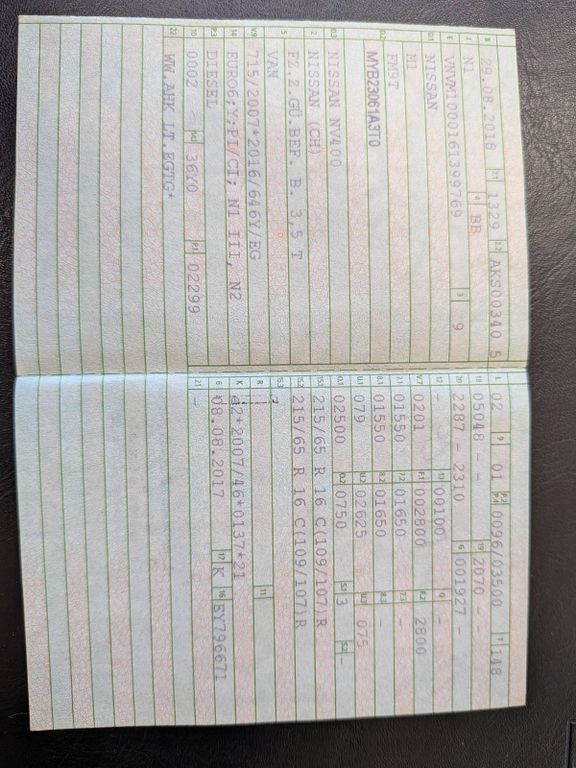 B 29.08.2018 2.1 1329 2.2 AKS00340 5
J N1 4 BB
E VNVM1000161399769 3 9
D.1 NISSAN
M1
D.2 FW9T
MYB23061A3T0
D.3 NISSAN NV400
2 NISSAN (CH)
5 FZ.Z.GÜ.BEF. B. 3,5 T
VAN
V.9 715/2007*2016/646Y/EG
14 EURO6;Y;PI/CI; N1 III, N2
P.3 DIESEL
10 0002 14.1 36Y0 P.1 02299
22 WW.AHK LT.EGTG*
L 02 9 01 P.2 P.4 0096/03500 T 148
18 05048 - - 19 2070 - -
20 2287 - 2310 G 001927 -
12 - 13 00100 Q -
V.7 0201 F.1 002800 F.2 2800
7.1 01550 7.2 01650 7.3 -
8.1 01550 8.2 01650 8.3 -
U.1 079 U.2 02625 U.3 075
O.1 02500 O.2 0750 S.1 3 S.2 -
15.1 215/65 R 16 C(109/107)R
15.2 215/65 R 16 C(109/107)R
15.3 -
R 11
K e2*2007/46*0137*21
6 08.08.2017 17 K 16 EY796671
21 -